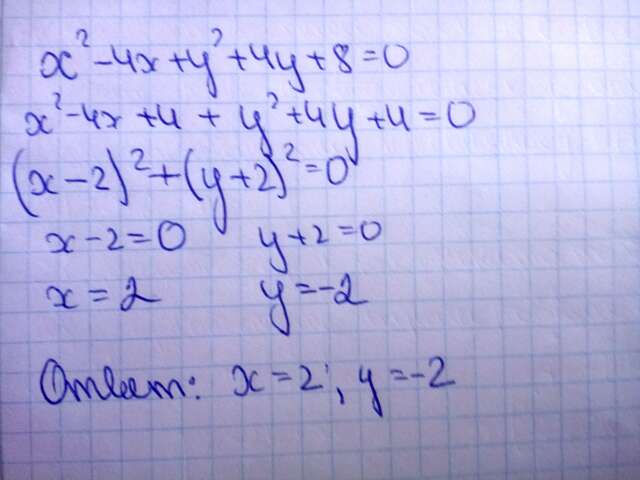 x² - 4x + y² + 4y + 8 = 0
x² - 4x + 4 + y² + 4y + 4 = 0
(x - 2)² + (y + 2)² = 0
x - 2 = 0 y + 2 = 0
x = 2 y = -2
Ответ: x = 2; y = -2